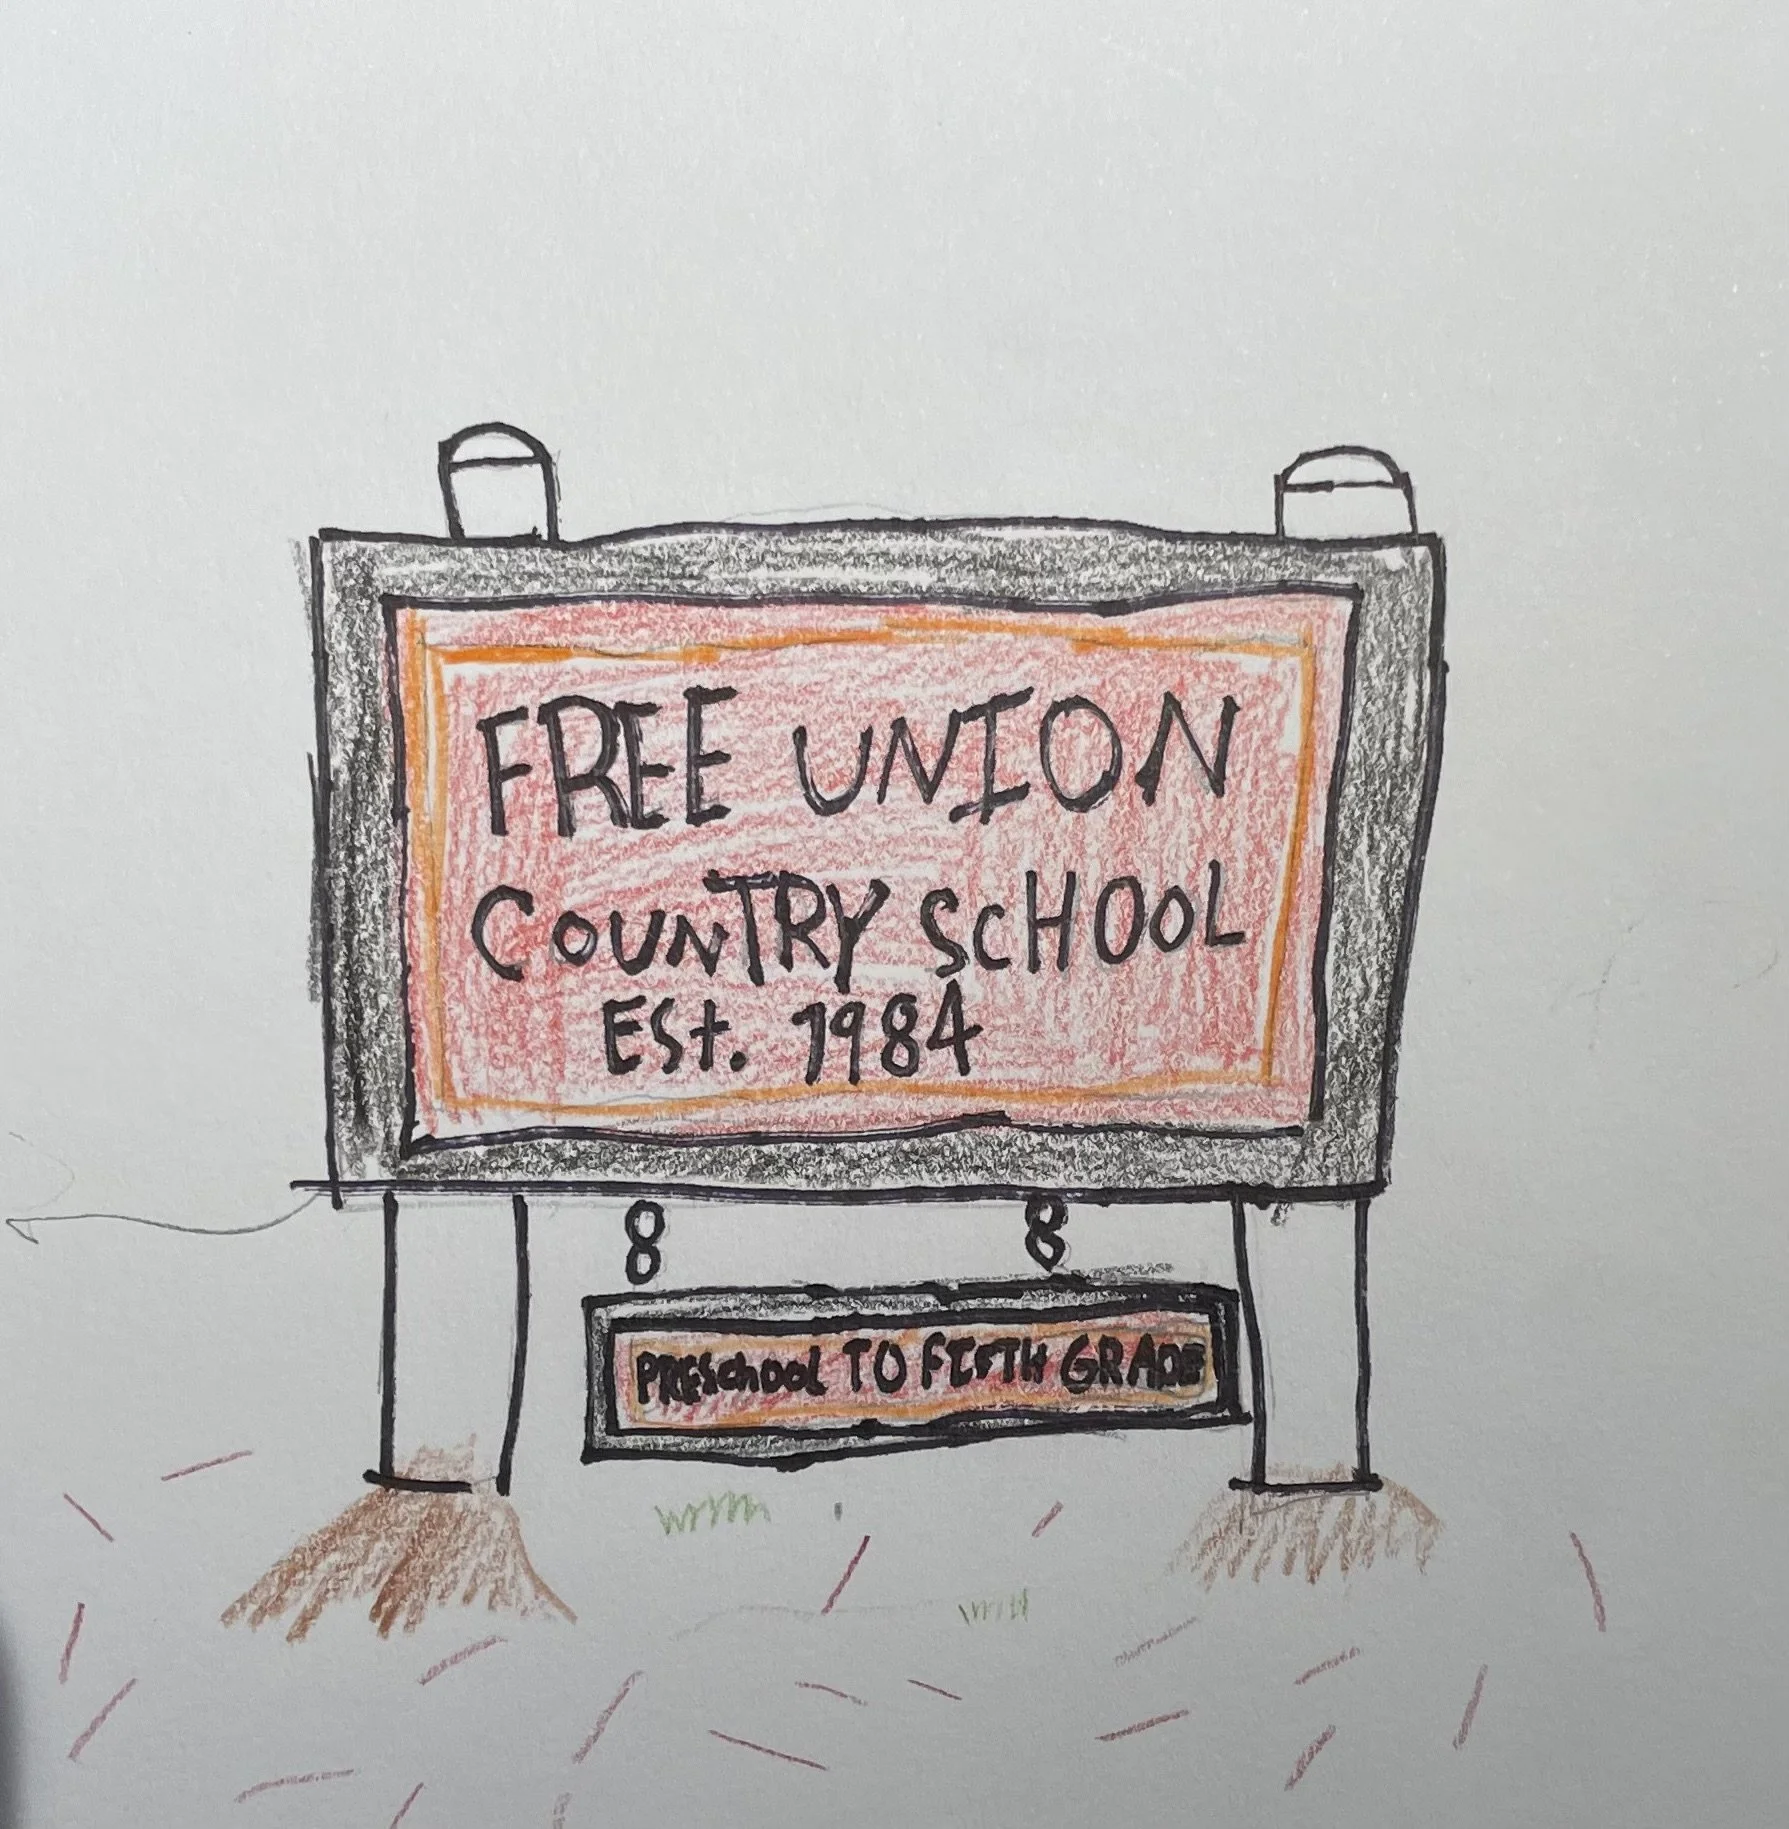 FREE UNION
COUNTRY SCHOOL
Est. 1984
8 8
PREschool TO FIFTH GRADE